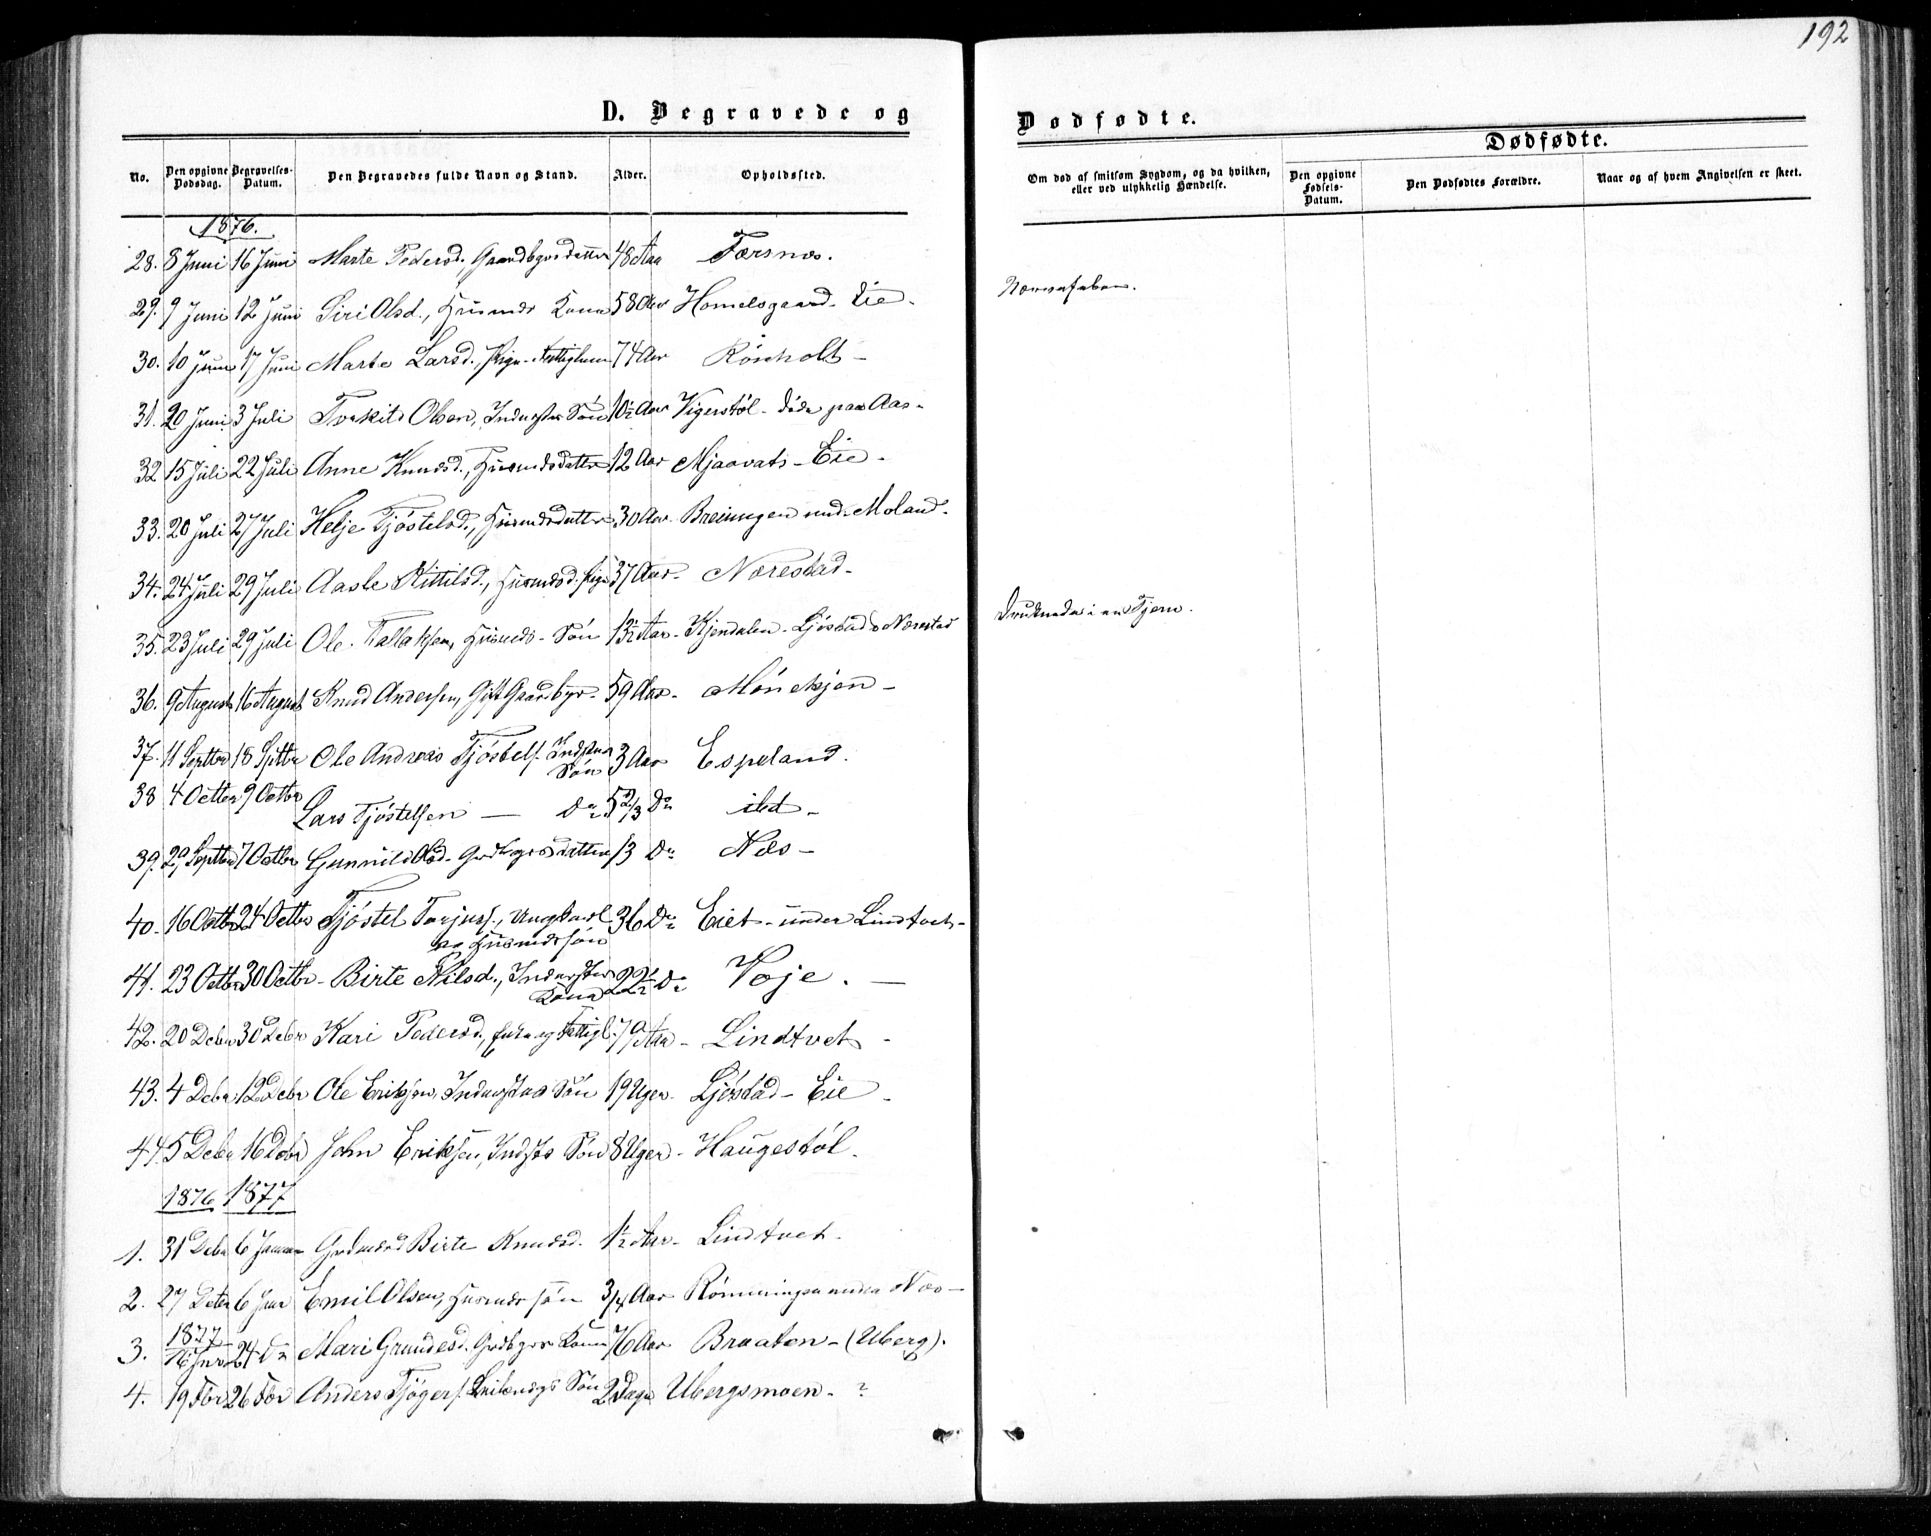 192
D. Begravede og
Dødfødte.
Dødfødte.
No.
Den opgivne Dødsdag.
Begravelses-Datum.
Den Begravedes fulde Navn og Stand.
Alder.
Opholdssted.
Om død af smitsom Sygdom, og da hvilken, eller ved ulykkelig Hændelse.
Den opgivne Fødsels-Datum.
Den Dødfødtes Forældre.
Naar og af hvem Angivelsen er skeet.
1876.
28. 8 Juni 16 Juni Marte Pedersd., Gaardbrgsdatter 48 Aar Færsnes.
29. 9 Juni 12 Juni Siri Olsd., Husmds Kone 58 Aar Homelsgaard - Eie - Nervefeber.
30. 10 Juni 17 Juni Marte Larsd., Pige - Fattiglem 74 Aar Röisholt -
31. 20 Juni 3 Juli Torkild Olsen, Inderster Sön 10½ Aar Vigerstöl - döde paa Aas -
32 15 Juli 22 Juli Anne Knudsd., Husmdsdatter 12 Aar Mjaavats - Eie -
33. 20 Juli 27 Juli Helje Tjöstelsd., Husmdsdatter 30 Aar Breiungen und. Moland -
34. 24 Juli 29 Juli Aaste Kittilsd., Husmdsd. Pige 37 Aar - Nærestad -
35. 23 Juli 29 Juli Ole Tallaksen, Husmds - Sön 13½ Aar - Kjendalen - Ljöstad Nærestad Druknede i en Tjern.
36. 9 August 16 August Knud Andersen, Gift Gaardbgr - 59 Aar - Mönekjen -
37. 11 Septbr 18 Septbr Ole Andreas Tjöstels. Indster Sön 3 Aar Espeland.
38 4 Octbr 9 Octbr Lars Tjöstelsen — Do 5⅔ Do ibd -
39. 29 Septbr 7 Octbr Gunnild Olsd - Grdbgrsdatter 13 Do Næs -
40. 16 Octbr 24 Octbr Tjöstel Torjusf., Ungkarl og Husmdssön 36 Do Eiet - under Lindtvet -
41. 23 Octbr 30 Octbr - Birte Nilsd., Inderster Kone 22½ Do Voje. —
42. 20 Debr 30 Debr Kari Pedersd., Enke og Fattigl. 79 Aar - Lindtvet -
43. 4 Debr 12 Debr Ole Eriksen, Inderstes Sön 19 Uger - Ljöstad - Eie -
44. 5 Debr 16 Debr John Eriksen, Indsts Sön 8 Uger - Haugestöl.
1876 1877
1. 31 Debr 6 Januar Birte Knudsd. 1½ Aar - Lindtvet.
2. 27 Debr 6 Janr Emil Olsen, Husmds sön 3/4 Aar Römmingen under Næs —
1877
3. 16 Janr 24 Do Mari Grundesd. Grdbgrs Kone 76 Aar Braaten - (Uberg).
4. 19 Febr 26 Febr Anders Tjögers. Sön 2 Dage Ubergsmoen - ?